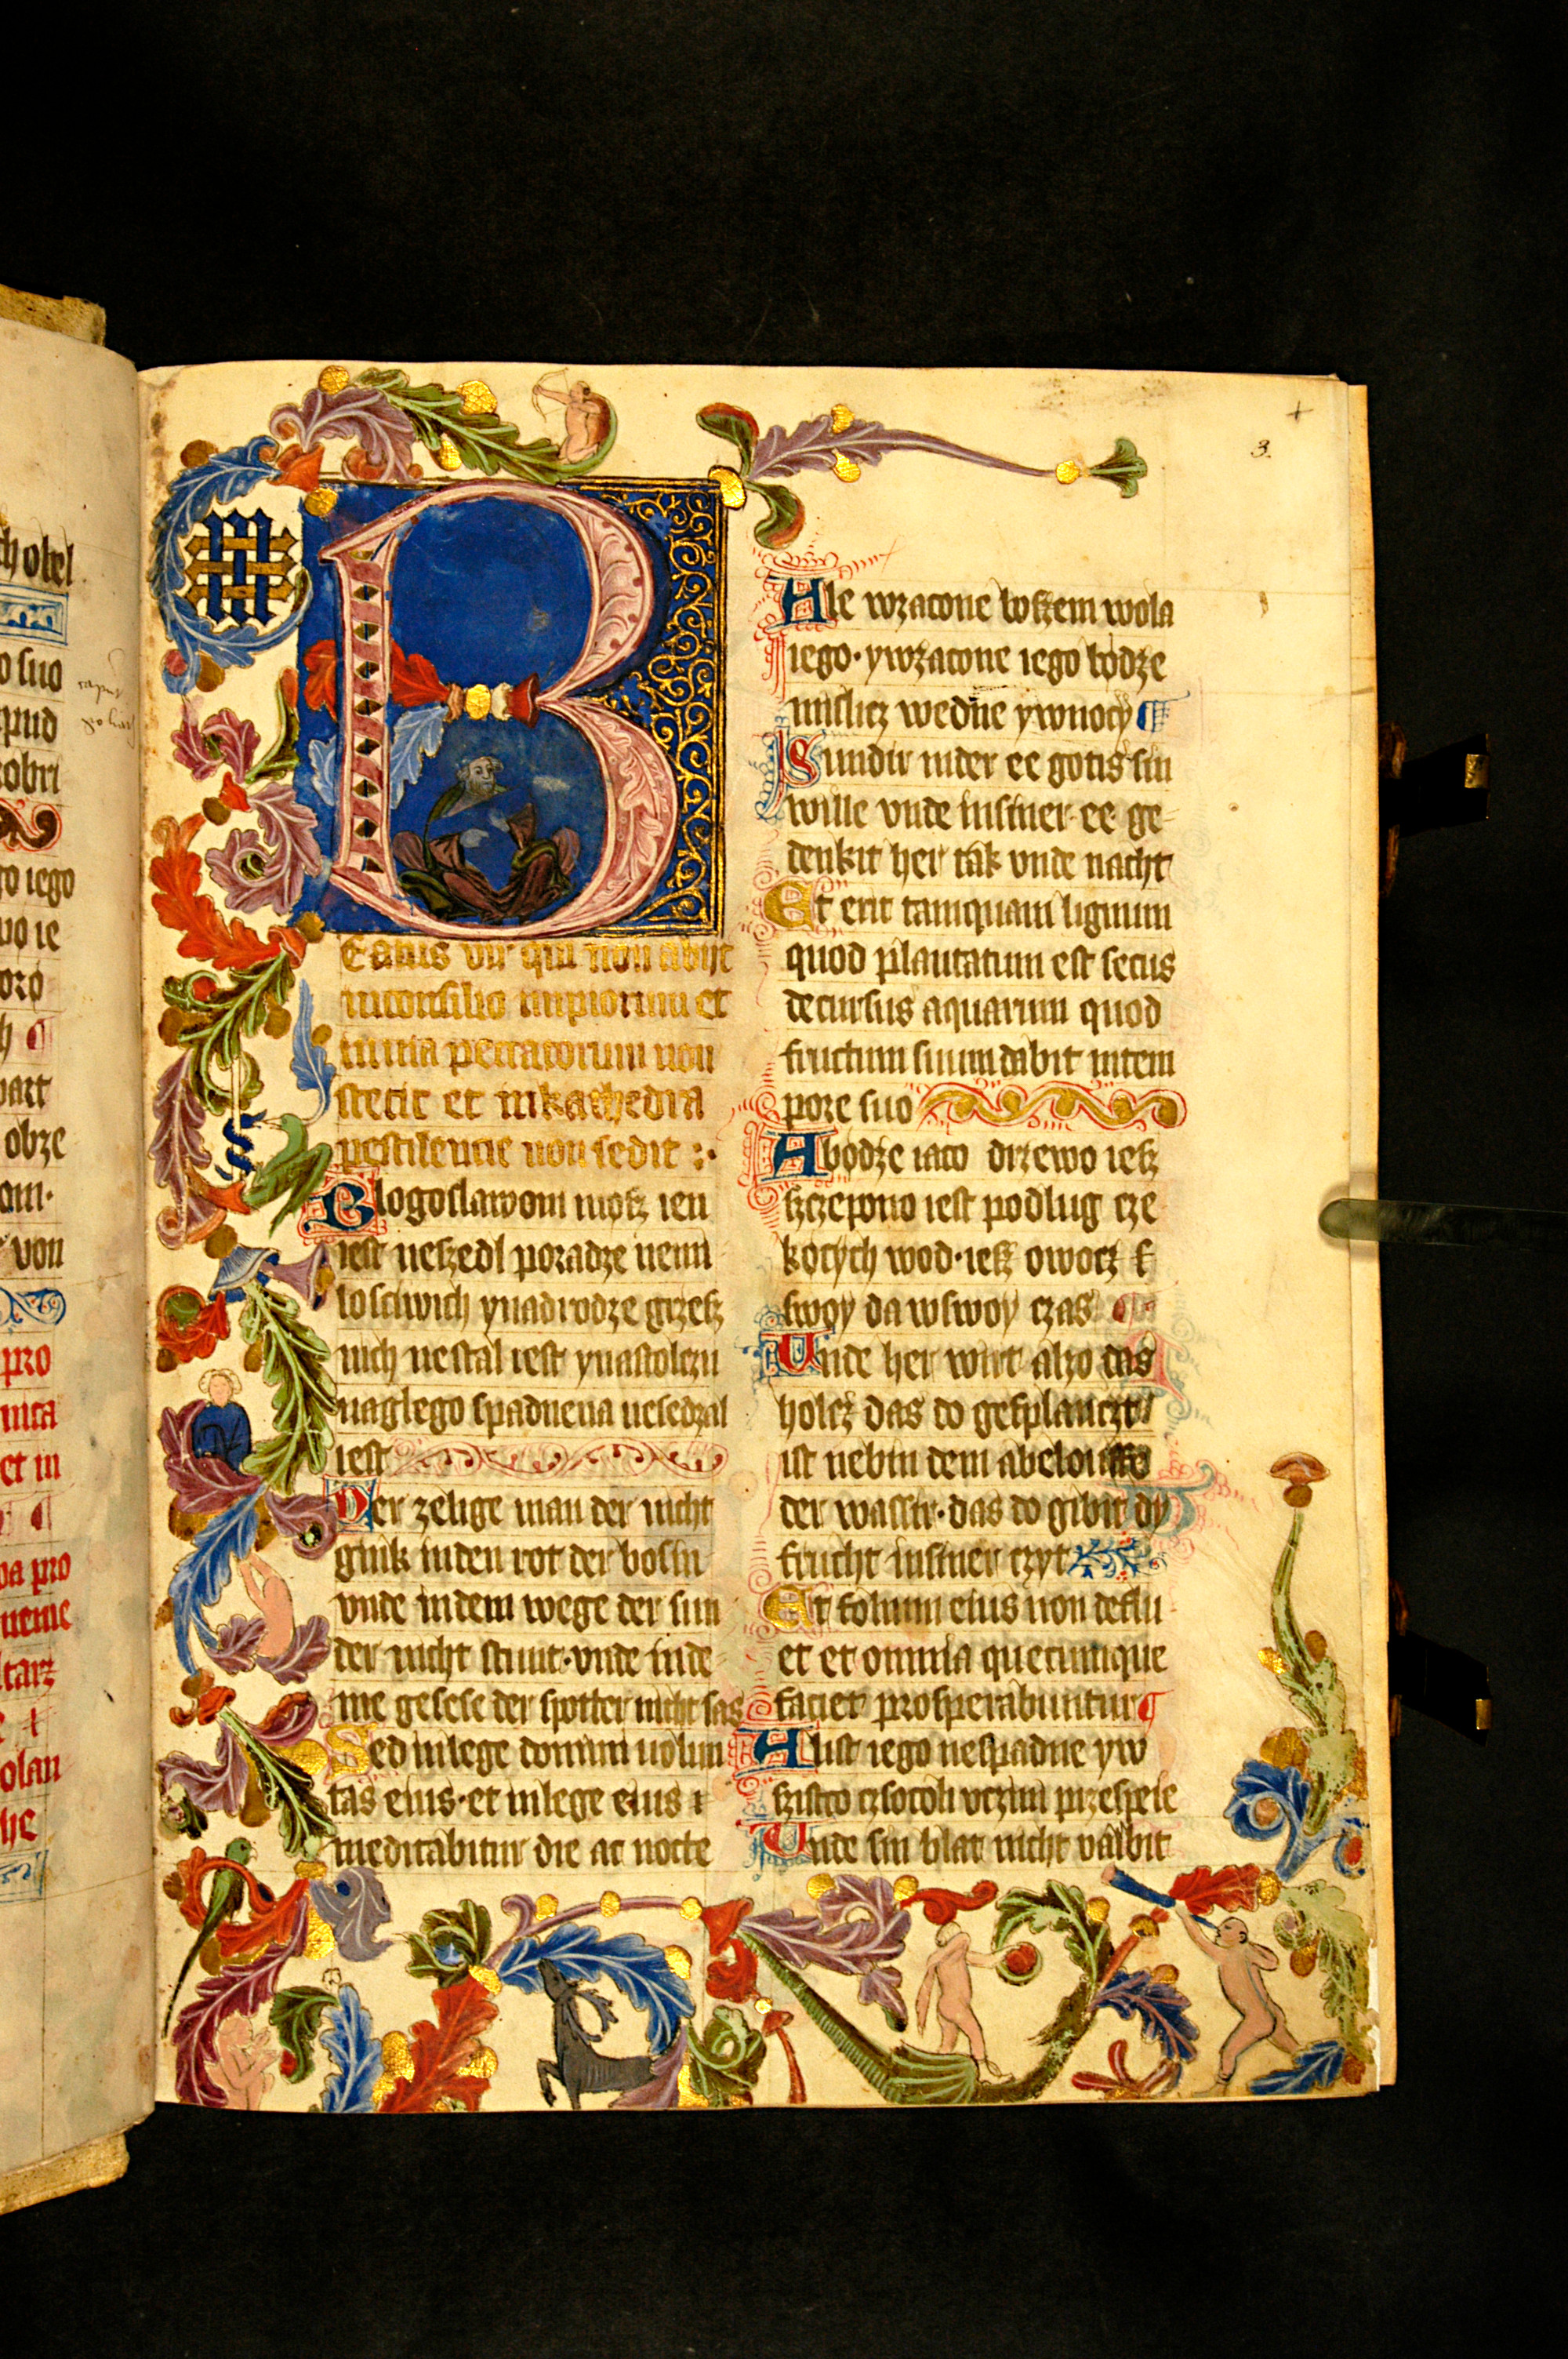 3.
Beatus vir qui non abijt
inconsilio impiorum et
inuia peccatorum non
stetit et inkathedra
pestilencie non sedit :·
Blogoslawom mosz ien
iest neszedl poradze nemi
losciwich ynadrodze grzesz
nich nestal iest ynastolczu
naglego spadnena nesedzal
iest
Der zelige man der nicht
gink inden rot der bosin
vnde indem wege der sun
der nicht stunt·vnde inde
me gesese der spotter nicht sas
Sed inlege domini uolun
tas eius·et inlege eius
meditabitur die ac nocte
Ale wzacone boszem wola
iego·ywzacone iego bodze
mislicz wedne ywnocy
Sundir inder ee gotis sin
wille vnde insiner ee ge
denkit her tak vnde nacht
Et erit tamquam lignum
quod plantatum est secus
decursus aquarum quod
fructum suum dabit intem
pore suo
Abodze iaco drzewo iesz
szczepono iest podlug cze
kocych wod·iesz owocz
swoy da wswoy czas
Unde her wirt alzo das
holcz das do gesplanczt
ist nebin dem abeloufte
der wassir·das do gibit dy
frucht insiner czyt
Et folium eius non deflu
et et omnia quecumque
faciet prosperabuntur
A list iego nespadne yw
szistco czsocoli vczini przespeie
Unde sin blat nicht valbit